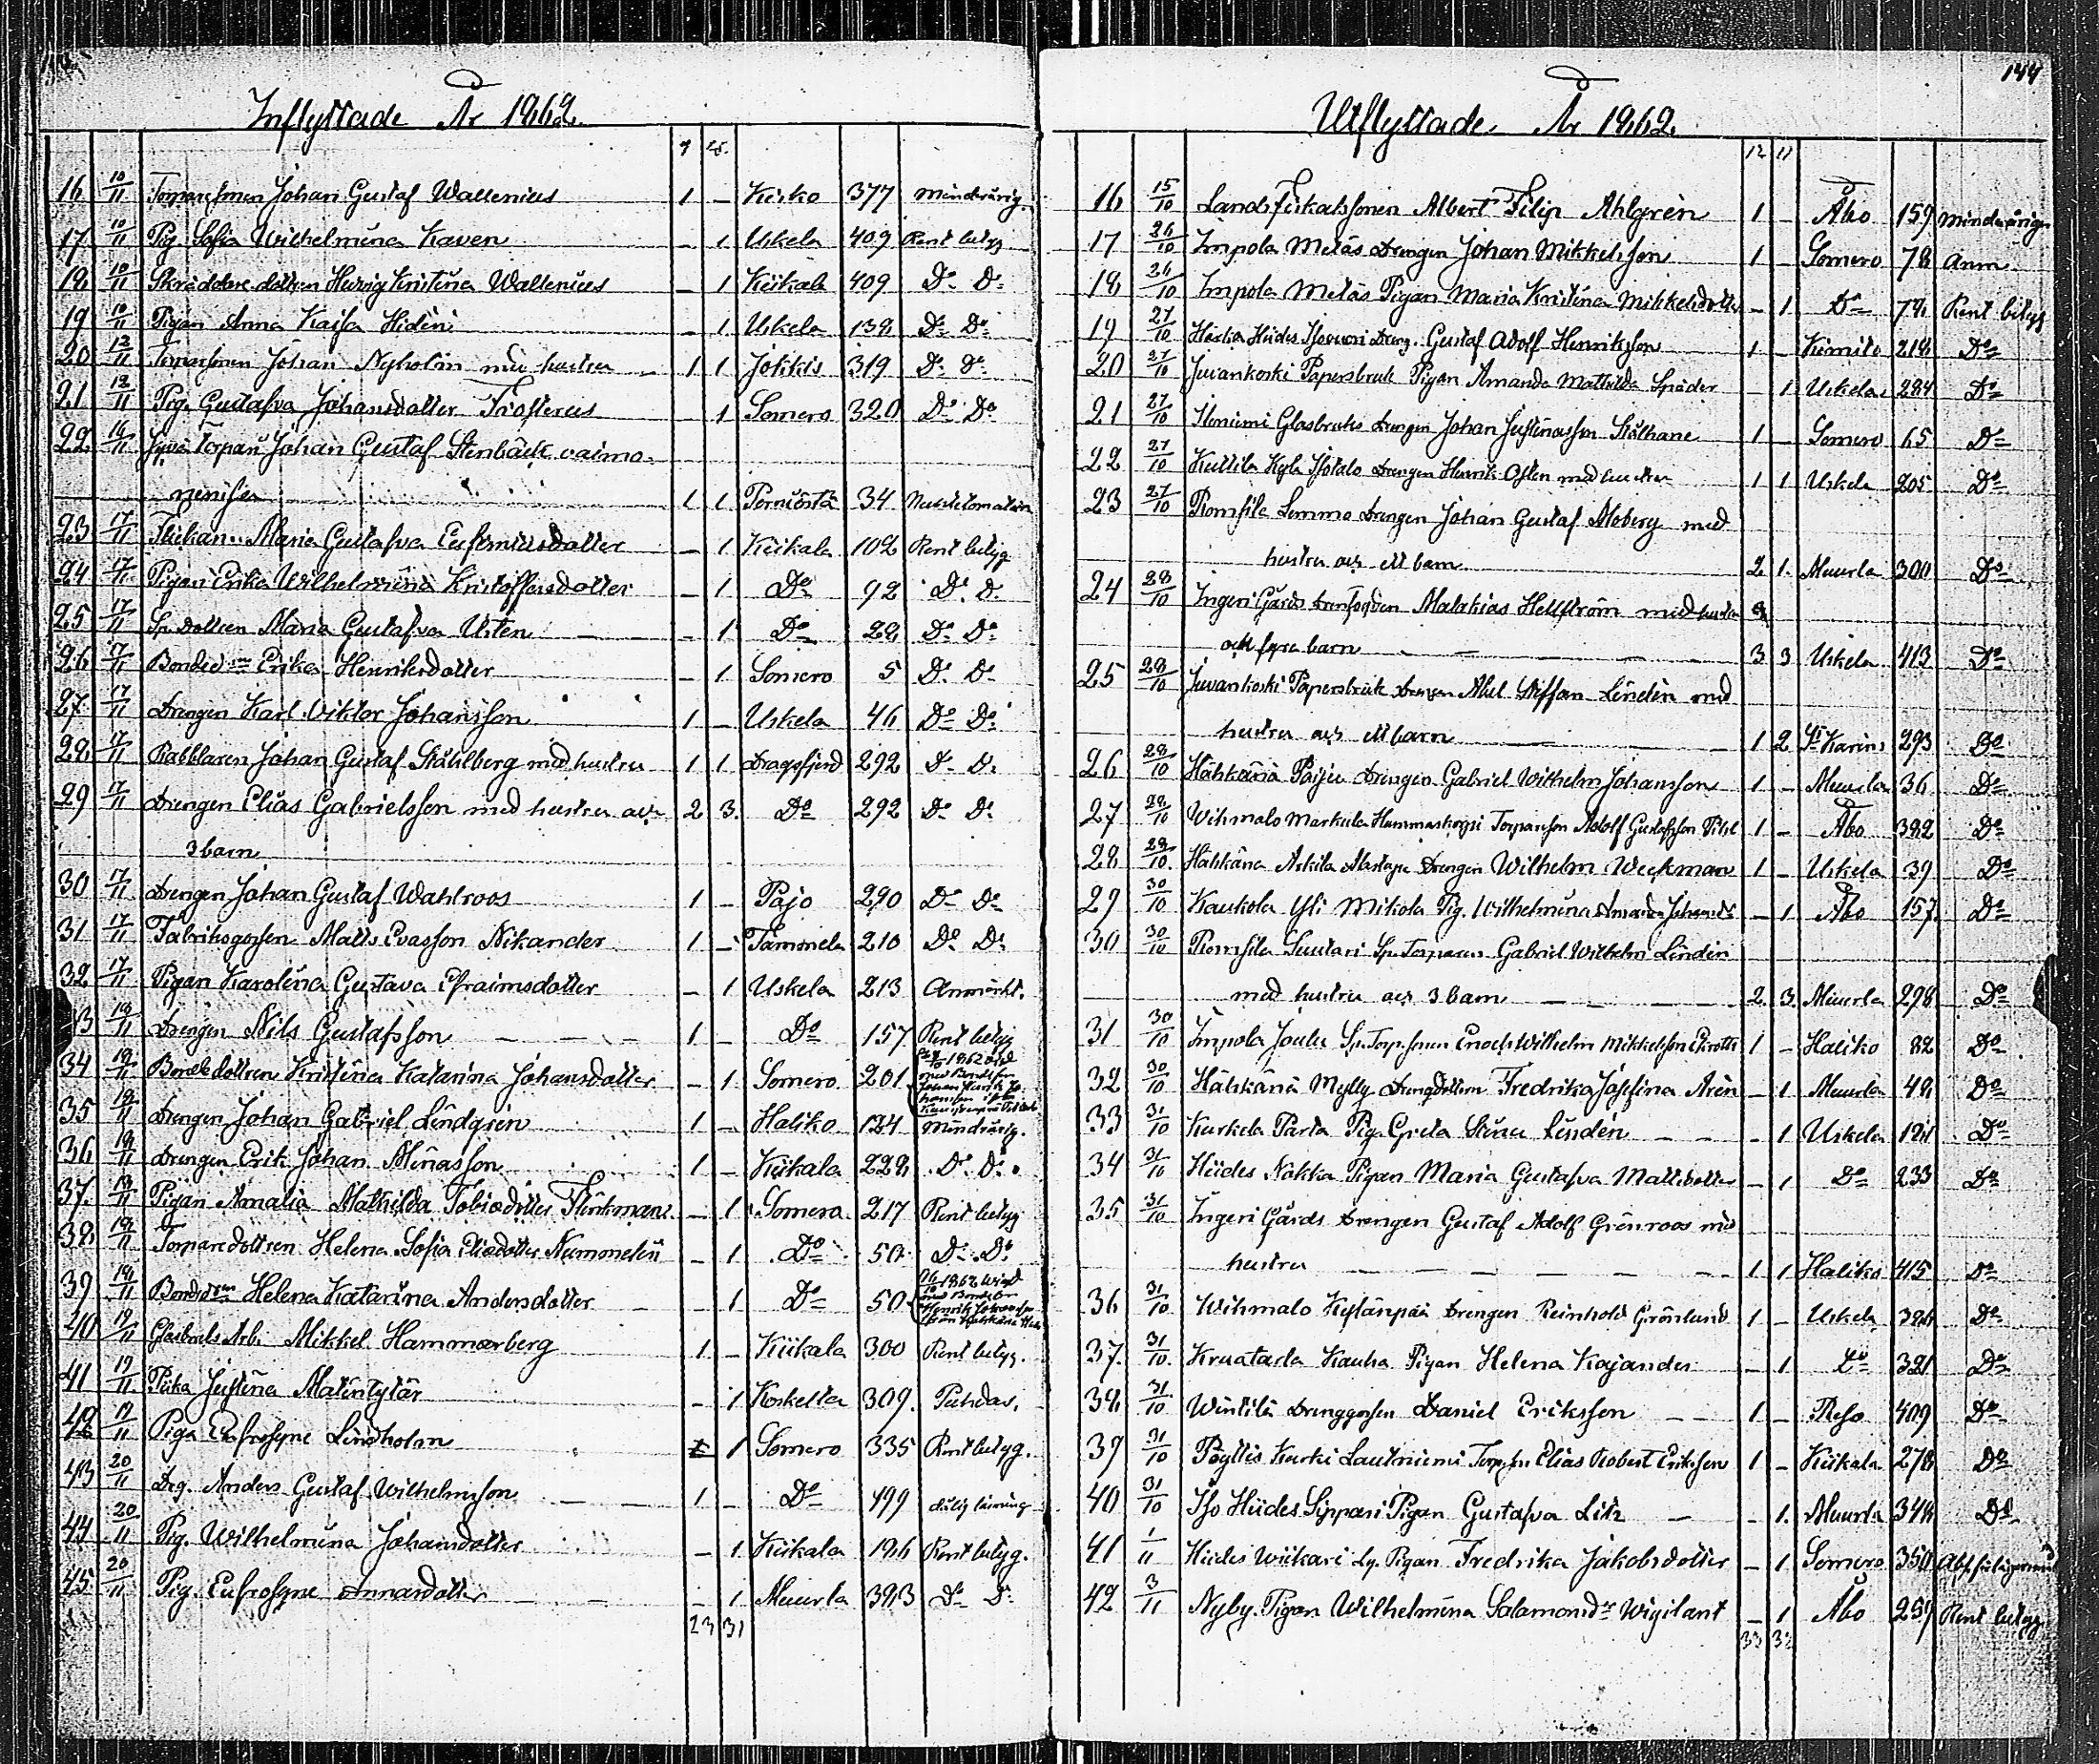 Inflyttade År 1862.
7 15
16 10/11 Torparesonen Johan Gustaf Wallenius 1 – Kisko 377 Minderårig.
17 10/11 Pig. Sofia Wilhelmina Kaven – 1 Uskela 409 Rent betyg
18 10/11 Skräddaredottren Hedvig Kristina Wallenius – 1 Kiikala 409 Do Do
19 10/11 Pigan Anna Kaisa Hidén – 1 Uskela 138 Do Do
20 12/11 Torparsonen Johan Nyholm med hustru 1 1 Jokkis 319 Do Do
21 12/11 Pig. Gustafva Johansdotter 1 Somero 320 Do Do
22 16/11 Torpari Johan Gustaf Stenbäck vaimo-
nensa 1 1 Perniöstä 34
23 17/11 Flickan Maria Gustafva – 1 Kiikala 102 Rent betyg
24 17/11 Pigan Erika Wilhelmina Kristoffersdotter – 1 Do 92 Do Do
25 17/11 Sp. dottren Maria Gustafva Usten – 1 Do 28 Do Do
26 17/11 Erika Henriksdotter – 1 Somero 5 Do Do
27 17/11 Drengen Karl Viktor Johansson 1 – Uskela 46 Do Do
28 17/11 Johan Gustaf Ståhlberg med hustru 1 1 Dragsfjerd 292 Do Do
29 17/11 Drengen Elias Gabrielsson med hustru och 2 3 Do 292 Do Do
3 barn
30 17/11 Drengen Johan Gustaf Wahlroos 1 – Pojo 290 Do Do
31 17/11 Fabriksgossen Matts Evasson Nikander 1 – Tammela 210 Do Do
32 17/11 Pigan Karolina Gustava Efraimsdotter – 1 Uskela 213 Anmärkt.
33 18/11 Drengen Nils Gustafsson 1 – Do 157 Rent betyg
34 18/11 Bondedottren Kristina Katarina Johansdotter – 1 Somero 201
35 18/11 Drengen Johan Gabriel Lindgrén 1 – Haliko 124 Mindrårig.
36 18/11 Drengen Erik Johan Minasson 1 – Kiikala 228 Do Do
37. 18/11 Pigan Amalia Mathilda Tobiædotter Flinkman – 1 Somero 217 Rent betyg
38 18/11 Torparedottren Helena Sofia Eliædotter Nummelin – 1 Do 50 Do Do
39 18/11 Helena Katarina Andersdotter – 1 Do 50
40 19/11 Glasbruks Arb. Mikkel Hammarberg 1 – Kiikala 300 Rent betyg.
41 19/11 Piika Justina Matintytär – 1 Koskelta 309. Puhdas.
42 19/11 Piga Eufrosyne Lindholm 1 Somero 335 Rent betyg.
43 20/11 Drg. Anders Gustaf Wilhelmsson 1 – Do 499
44 20/11 Pig. Wilhelmina Johansdotter – 1 Kiikala 196 Rent betyg.
45 20/11 Pig. Eufrosyne Annasdotter – 1 Muurla 393 Do Do
23 31
144
Utflyttade År 1862.
12 11
16 15/10 Landsfiskalssonen Albert Filip Ahlgren 1 – Åbo 159 Minderårig
17 26/10 Impola Metäs Drengen Johan Mikkelsson 1 – Somero 78 Anm.
18 26/10 Impola Metäs Pigan Maria Kristina Mikkelsdotter – 1 Do 78 Rent betyg
19 27/10 Gustaf Adolf Henriksson 1 – Kimito 218 Do
20 27/10 Juvankoski Papersbruk Pigan Amanda Mathilda Späder – 1 Uskela 284 Do
21 27/10 Glasbruks Drengen Johan Justinasson 1 – Somero 65 Do
22 27/10 Kuttila Kyla Isotalo Drengen Henrik Osten med hustru 1 1 Uskela 205 Do
23 27/10 Romsila Lemmo Drengen Johan Gustaf Moberg med
hustru och ett barn 2 1 Muurla 300 Do
24 28/10 Ingeri Gårds Malakias Hellström med hustru
och fyra barn 3 3 Uskela 413 Do
25 28/10 Juvankoski Papersbruk Drengen Abel Stiffan Lindén med
hustru och ett barn 1 2 St Karins 293 Do
26 28/10 Hähkänä Paiju Drengen Gabriel Wilhelm Johansson 1 – Muurla 36 Do
27 28/10 Wihmalo Markula Torparson Adolf Gustafsson 1 – Åbo 382 Do
28 29/10 Hähkänä Drengen Wilhelm Weckman 1 – Uskela 39 Do
29 30/10 Kaukola Yli Mikola Pig. Wilhelmina Amanda – 1 Åbo 157 Do
30 30/10 Romsila Suutari Sp. Torparen Gabriel Wilhelm Lindén
med hustru och 3 barn 2 3 Muurla 298 Do
31 30/10 Impola Joulu Sp. Torp.sonen Enoch Wilhelm Mikkelsson 1 – Haliko 82 Do
32 30/10 Hähkänä Mylly Drengdottren Fredrika Josefina Arén – 1 Muurla 48 Do
33 31/10 Kurkela Parta Pig. Greta Stina Lindén – 1 Uskela 121 Do
34 31/10 Hiides Nokka Pigan Maria Gustafva Mattsdotter – 1 Do 233 Do
35 31/10 Ingeri Gårds Drengen Gustaf Adolf Grönroos med
hustru 1 1 Haliko 415 Do
36 31/10 Wihmalo Kylänpää Drengen Reinhold Grönlund 1 – Uskela 386 Do
37 31/10 Kruatarla Kauha Pigan Helena Kajander – 1 Do 321 Do
38 31/10 Wintilä Drenggossen Daniel Eriksson 1 – Reso 409 Do
39 31/10 Pöytiö Kurki Lautniemi Elias Robert Eriksson 1 – Kiikala 278 Do
40 31/10 Iso Hiides Sippari Pigan Gustafva Litz – 1 Muurla 348 Do
41 1/11 Hiides Wiikari Pigan Fredrika Jakobsdotter – 1 Somero 350
42 3/11 Nyby Pigan Wilhelmina Salamonsdr Wigilant – 1 Åbo 259 Rent betyg
33 32